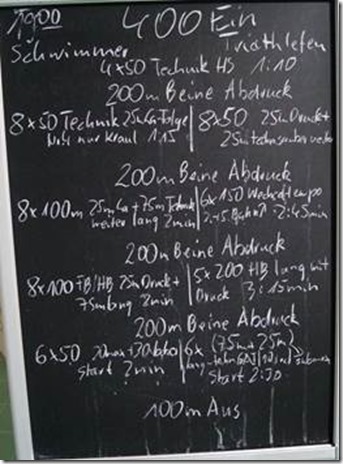 1900 400 Ein
Schwimmer Triathleten
4x50 Technik HS 1:10
200m Beine Abdruck
8x50 Technik 25m Ga-Folge | 8x50 25m Druck+
nur Kraul 1:15 25m
200m Beine Abdruck
8x100m 25m Ga + 75m Technik | 6x150 Wechseltempo
weiter lang 2min 2:45min
200m Beine Abdruck
8x100 FB/HB 25m Druck+ | 5x200 HB lang mit
75m 2min Druck 3:15min
200m Beine Abdruck
6x50 20max+30 | 6x (75m+25m)
Start 2min lang
Start 2:30
100m Aus